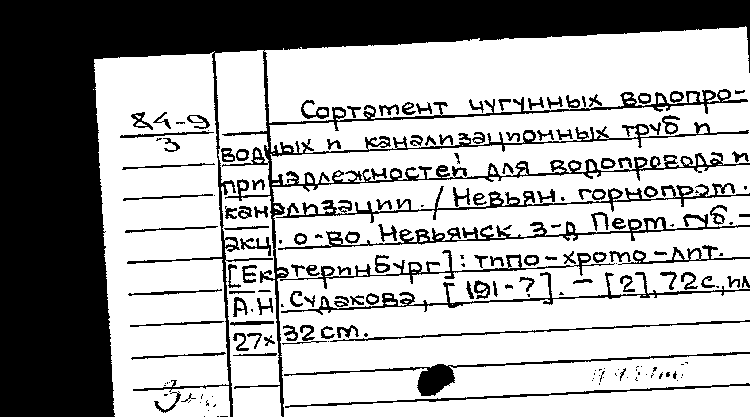 84-9
3
Сортамент чугунных водопро-
водных и канализационных труб и
принадлежностей для водопровода и
канализации. / Невьян. горнопром.
акц. о-во. Невьянск. з-д Перм. губ. -
[Екатеринбург]: типо-хромо-лит.
А.Н. Судакова, [191-?]. - [2], 72 с., ил
27х32 см.